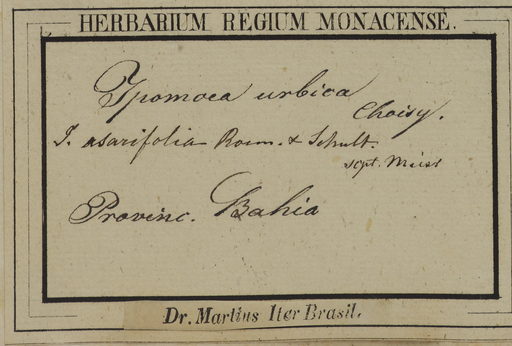 HERBARIUM REGIUM MONACENSE.
Ipomoea urbica
Choisy.
I. asarifolia Roem. & Schult.
scpt. Meisn
Provinc. Bahia
Dr. Martius Iter Brasil.